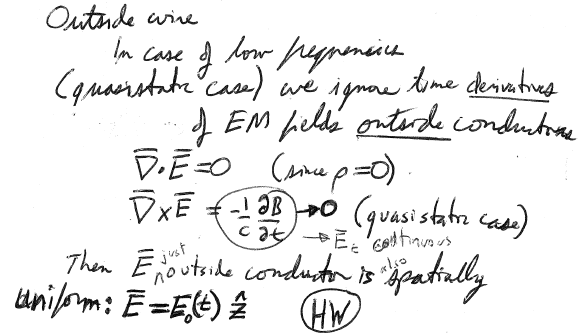 Outside wire
In case of low frequencies
(quasistatic case) we ignore time derivatives
of EM fields outside conductors
∇̄·Ē=0 (since ρ=0)
∇̄×Ē = -1/c ∂B̄/∂t → 0 (quasistatic case)
→ Ē_t continuous
Then Ē just outside conductor is also spatially
uniform: Ē = E₀(t) ẑ HW